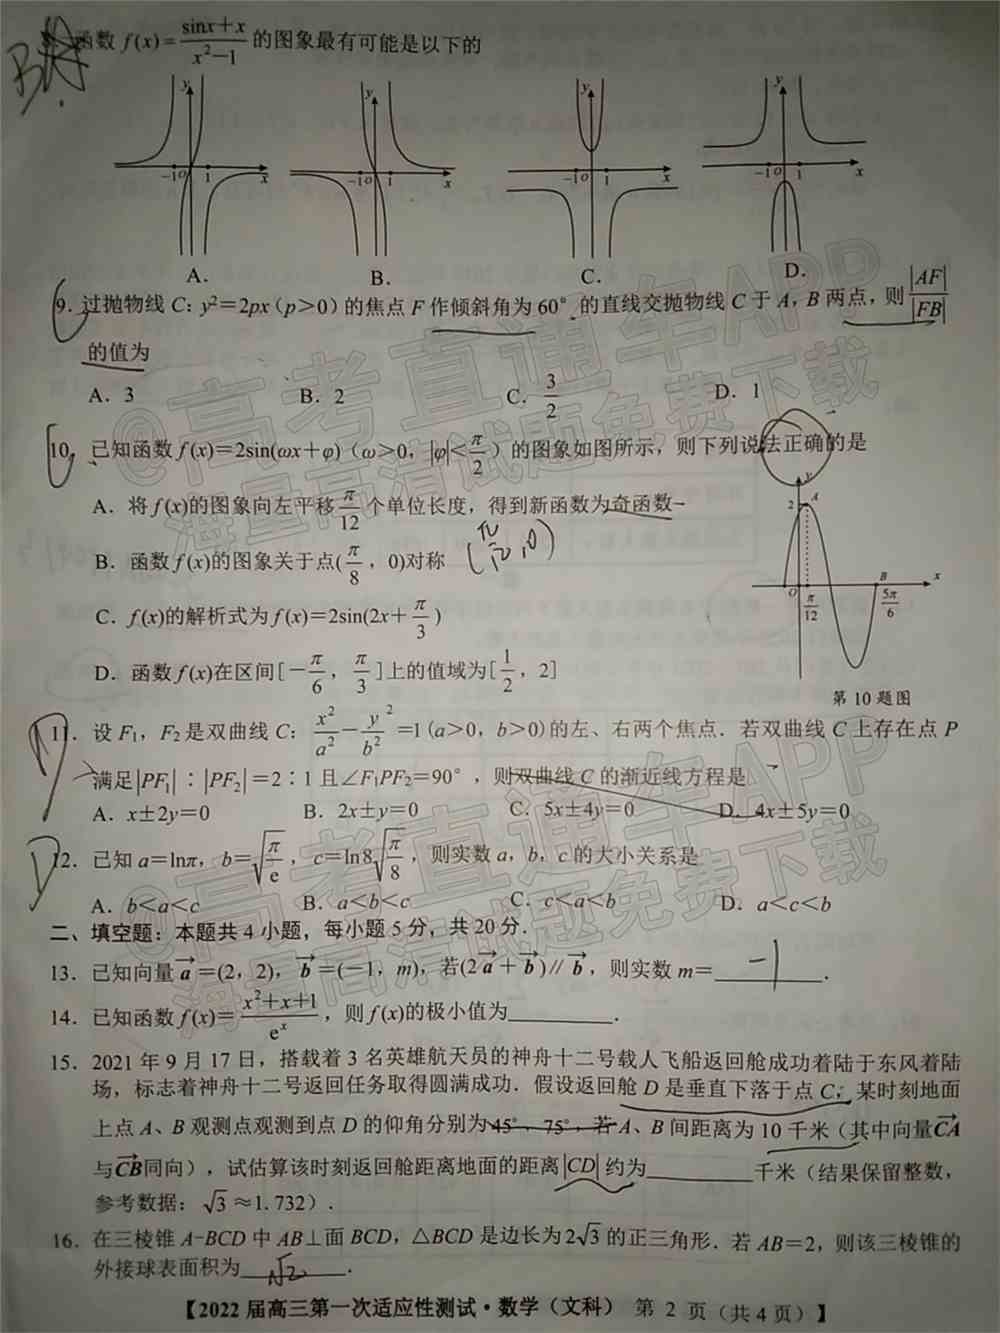 函数 f(x)=(sinx+x)/(x²−1) 的图象最有可能是以下的
B
y y y y
−1 O 1 x −1 O 1 x −1 O 1 x −1 O 1 x
A. B. C. D.
9. 过抛物线 C: y²=2px (p>0) 的焦点 F 作倾斜角为 60° 的直线交抛物线 C 于 A, B 两点, 则 |AF|/|FB|
的值为
A. 3 B. 2 C. 3/2 D. 1
10. 已知函数 f(x)=2sin(ωx+φ) (ω>0, |φ|<π/2) 的图象如图所示, 则下列说法正确的是
A. 将 f(x)的图象向左平移 π/12 个单位长度, 得到新函数为奇函数
B. 函数 f(x)的图象关于点(π/8, 0)对称 (π/12, 0)
C. f(x)的解析式为 f(x)=2sin(2x+π/3)
D. 函数 f(x)在区间[−π/6, π/3]上的值域为[1/2, 2]
y 2 A O π/12 B 5π/6 x
第 10 题图
11. 设 F₁, F₂是双曲线 C: x²/a²−y²/b²=1(a>0, b>0)的左、右两个焦点. 若双曲线 C 上存在点 P
满足|PF₁|∶|PF₂|=2∶1 且∠F₁PF₂=90°, 则双曲线 C 的渐近线方程是
A. x±2y=0 B. 2x±y=0 C. 5x±4y=0 D. 4x±5y=0
D
12. 已知 a=lnπ, b=√(π/e), c=ln8√(π/8), 则实数 a, b, c 的大小关系是
A. b<a<c B. a<b<c C. c<a<b D. a<c<b
二、填空题: 本题共 4 小题, 每小题 5 分, 共 20 分.
13. 已知向量 a=(2, 2), b=(−1, m), 若(2a+b)∥b, 则实数 m=−1.
14. 已知函数 f(x)=(x²+x+1)/eˣ, 则 f(x)的极小值为________.
15. 2021 年 9 月 17 日, 搭载着 3 名英雄航天员的神舟十二号载人飞船返回舱成功着陆于东风着陆
场, 标志着神舟十二号返回任务取得圆满成功. 假设返回舱 D 是垂直下落于点 C, 某时刻地面
上点 A、B 观测点观测到点 D 的仰角分别为 45°, 75°, 若 A、B 间距离为 10 千米 (其中向量CA
与CB同向), 试估算该时刻返回舱距离地面的距离|CD|约为________千米 (结果保留整数,
参考数据: √3≈1.732).
16. 在三棱锥 A-BCD 中 AB⊥面 BCD, △BCD 是边长为 2√3 的正三角形. 若 AB=2, 则该三棱锥的
外接球表面积为________.
【2022 届高三第一次适应性测试·数学 (文科) 第 2 页 (共 4 页)】
@高考直通车APP
海量高清试题免费下载
@高考直通车APP
海量高清试题免费下载